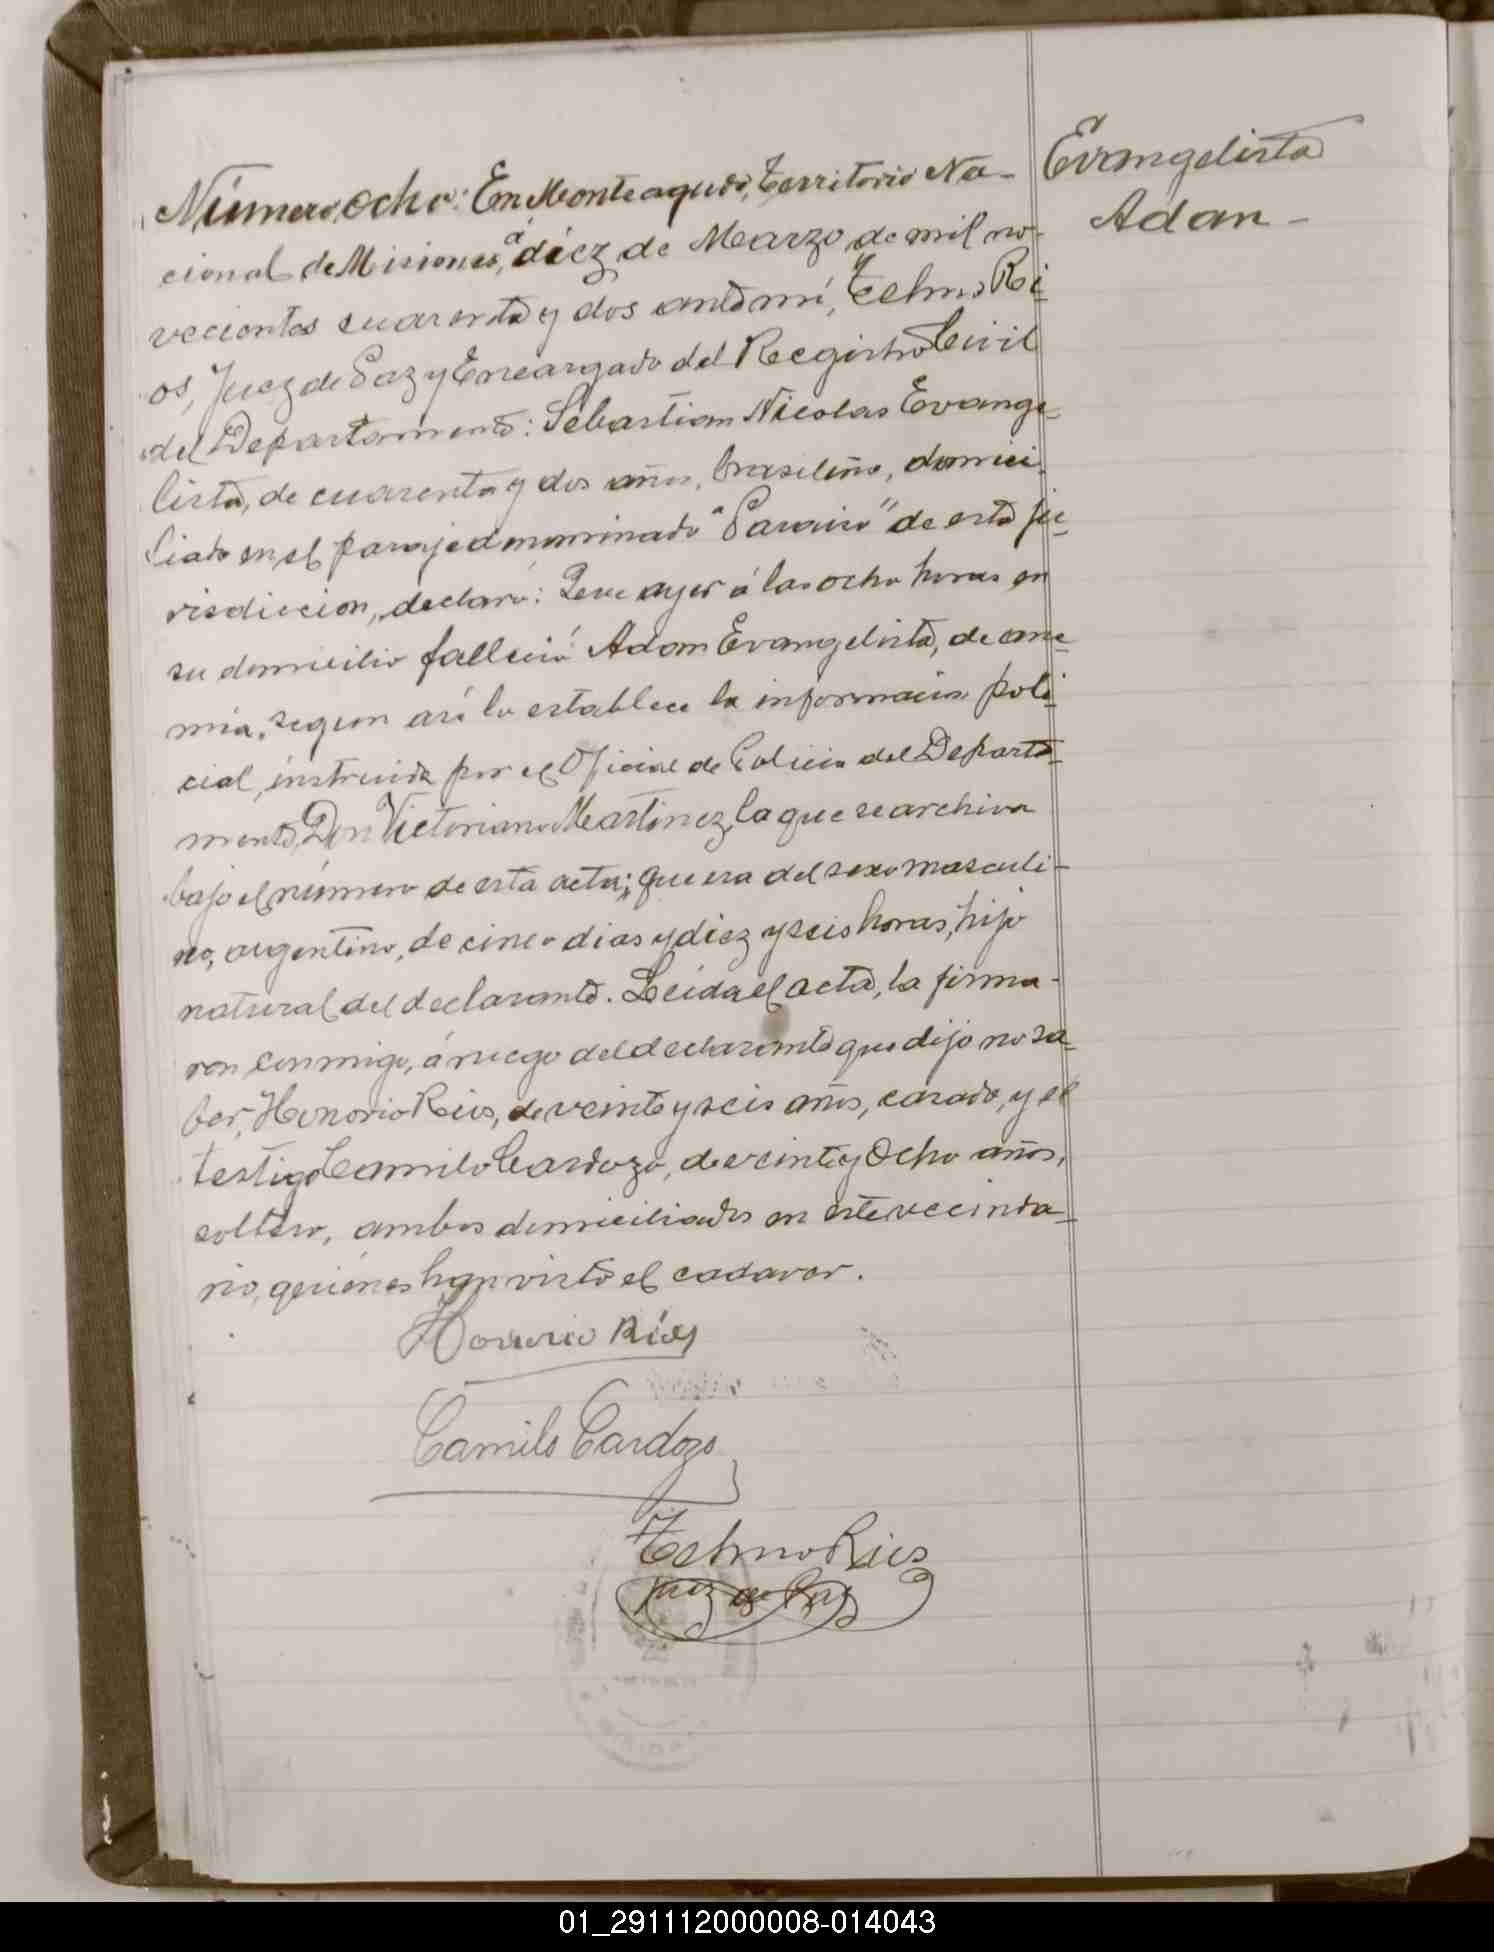 Evangelista
Adan -
Número ocho: En Monteagudo, Territorio Na-
cional de Misiones, á diez de Marzo de mil no-
vecientos cuarenta y dos ante mí, Telmo Rí-
os, Juez de Paz y Encargado del Registro Civil
del Departamento: Sebastian Nicolas Evange-
lista, de cuarenta y dos años, brasileño, domici-
liado en el paraje denominado "Paraiso" de esta ju-
risdiccion, declaró: Que ayer á las ocho horas en
su domicilio falleció Adan Evangelista, de ane-
mia, segun así lo establece la informacion poli-
cial, instruida por el Oficial de Policia del Departa-
mento, Don Victoriano Martinez, la que se archiva
bajo el número de esta acta; que era del sexo masculi-
no, argentino, de cinco dias y diez y seis horas, hijo
natural del declarante. Leida el acta, la firma-
ron conmigo, á ruego del declarante que dijo no sa-
ber, Honorio Rios, de veinte y seis años, casado, y el
testigo Camilo Cardozo, de veinte y Ocho años,
soltero, ambos domiciliados en este vecinda-
rio, quiénes han visto el cadaver.
Honorio Ríos
Camilo Cardozo
Telmo Rios
Juez de Paz
01_291112000008-014043